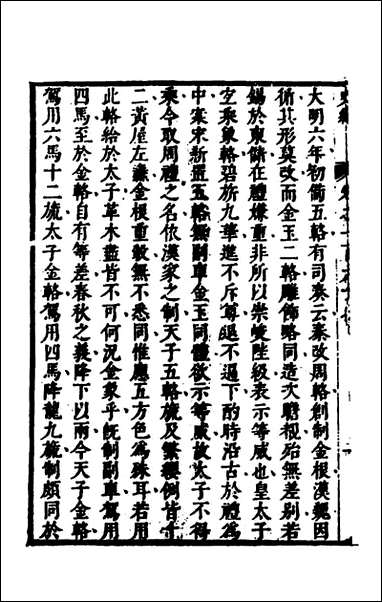 大明六年初備五輅有司奏云秦改周輅創制金根漢魏因
循其形莫改而金玉二輅雕飾略同造次瞻覩殆無差別若
錫於東儲在禮嫌重非所以崇峻陛級表示等威也皇太子
宜乘象輅碧旂九葉進不斥尊退不逼下酌時沿古於禮為
中案宋新置五輅無副車金玉同體欲示等威故太子不得
乘今取周禮之名依漢家之制天子五輅旒及繁纓例皆十
二黃屋左纛金根重轂無不悉同惟應五方色為殊耳若用
此輅給於太子革木盡皆不可何況金象乎既制副車駕用
四馬至於金輅自有等差春秋之義降下以兩今天子金輅
駕用六馬十二旒太子金輅駕用四馬降龍九旒制頗同於